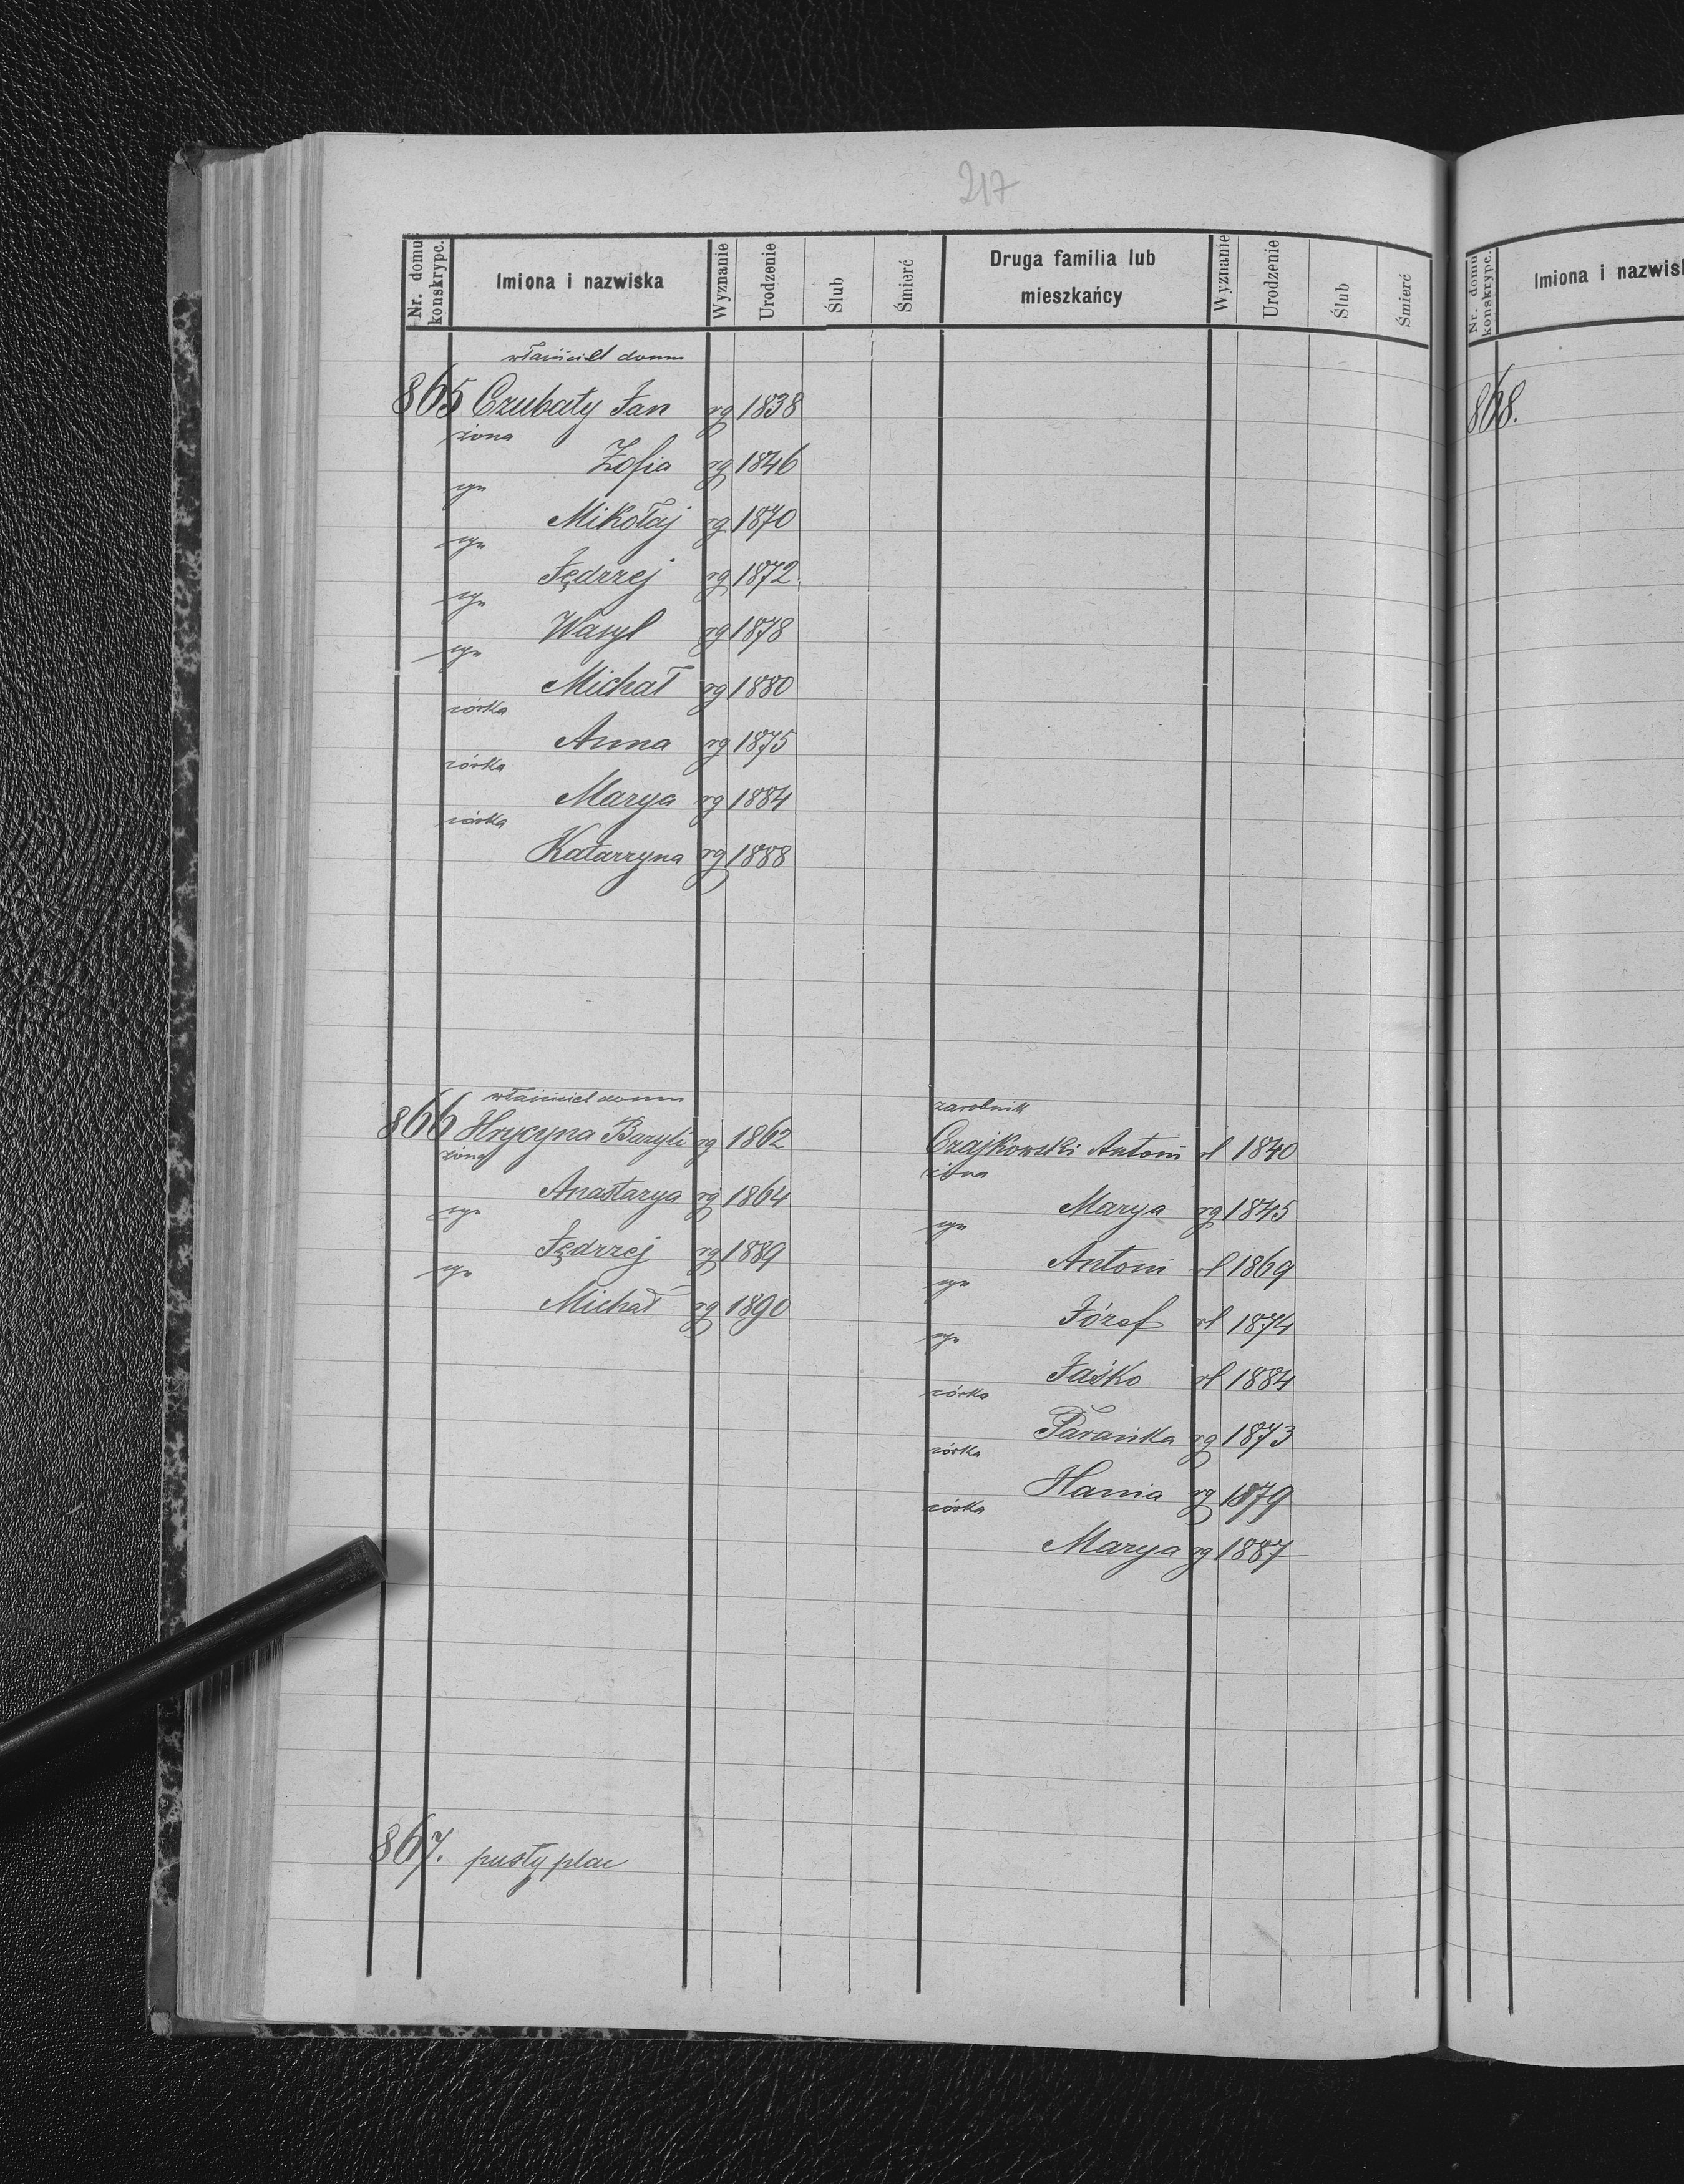 217
Nr. domu konskrypc. Imiona i nazwiska Wyznanie Urodzenie Ślub Śmierć Druga familia lub mieszkańcy Wyznanie Urodzenie Ślub Śmierć
właściciel domu
865 Czubaty Jan rg 1838
żona
Zofia rg 1846
syn
Mikołaj rg 1870
syn
Jędrzej rg 1872
syn
Wasyl rg 1878
syn
Michał rg 1880
córka
Anna rg 1875
córka
Marya rg 1884
córka
Katarzyna rg 1888
właściciel domu
866 Hrycyna Bazyli rg 1862
żona
Anastazya rg 1864
syn
Jędrzej rg 1889
syn
Michał rg 1890
zarobnik
Czajkowski Antoni rl 1840
żona
Marya rg 1845
syn
Antoni rl 1869
syn
Józef rl 1874
syn
Jaśko rl 1884
córka
Parańka rg 1873
córka
Hania rg 1879
córka
Marya rg 1887
867. pusty plac
Nr. domu konskrypc. Imiona i nazwisk
868.